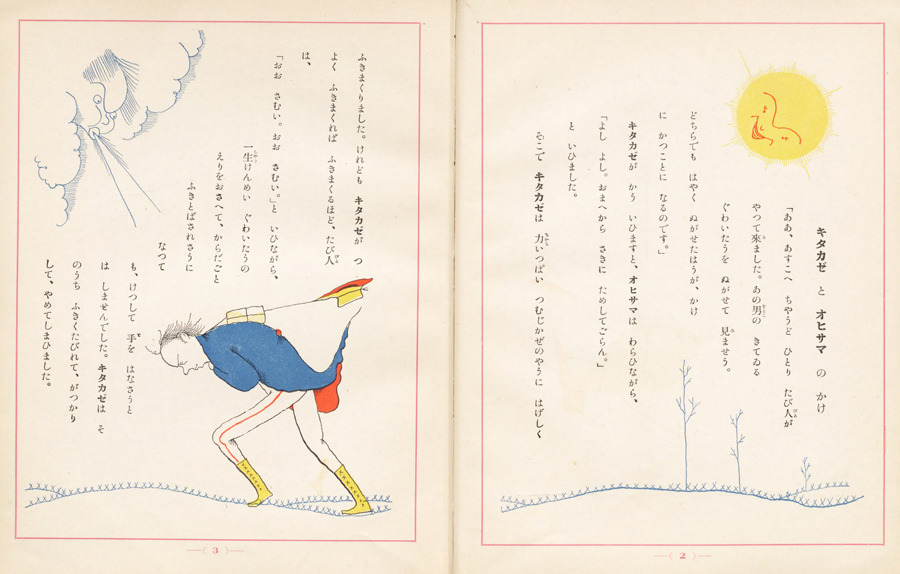 キタカゼ と オヒサマ の かけ
「ああ、あすこへ ちやうど ひとり たび人が
やつて來ました。あの男の きてゐる
ぐわいたうを ぬがせて 見ませう。
どちらでも はやく ぬがせたはうが、かけ
に かつことに なるのです。」
キタカゼが かう いひますと、オヒサマは わらひながら、
「よし よし。おまへから さきに ためしてごらん。」
と いひました。
そこで キタカゼは 力いつぱい つむじかぜのやうに はげしく
2
ふきまくりました。けれども キタカゼが つ
よく ふきまくれば ふきまくるほど、たび人
は、
「おお さむい。おお さむい。」と いひながら、
一生けんめい ぐわいたうの
えりをおさへて、からだごと
ふきとばされさうに
なつて
も、けつして 手を はなさうと
は しませんでした。キタカゼは そ
のうち ふきくたびれて、がつかり
して、やめてしまひました。
3